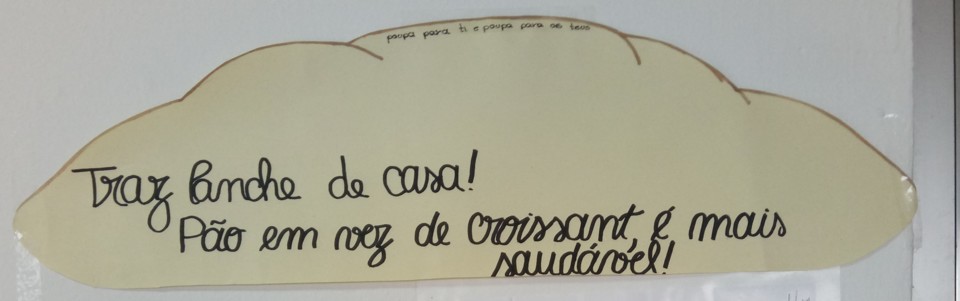 poupa para ti e poupa para os teus
Traz lanche de casa!
Pão em vez de croissant, é mais
saudável!